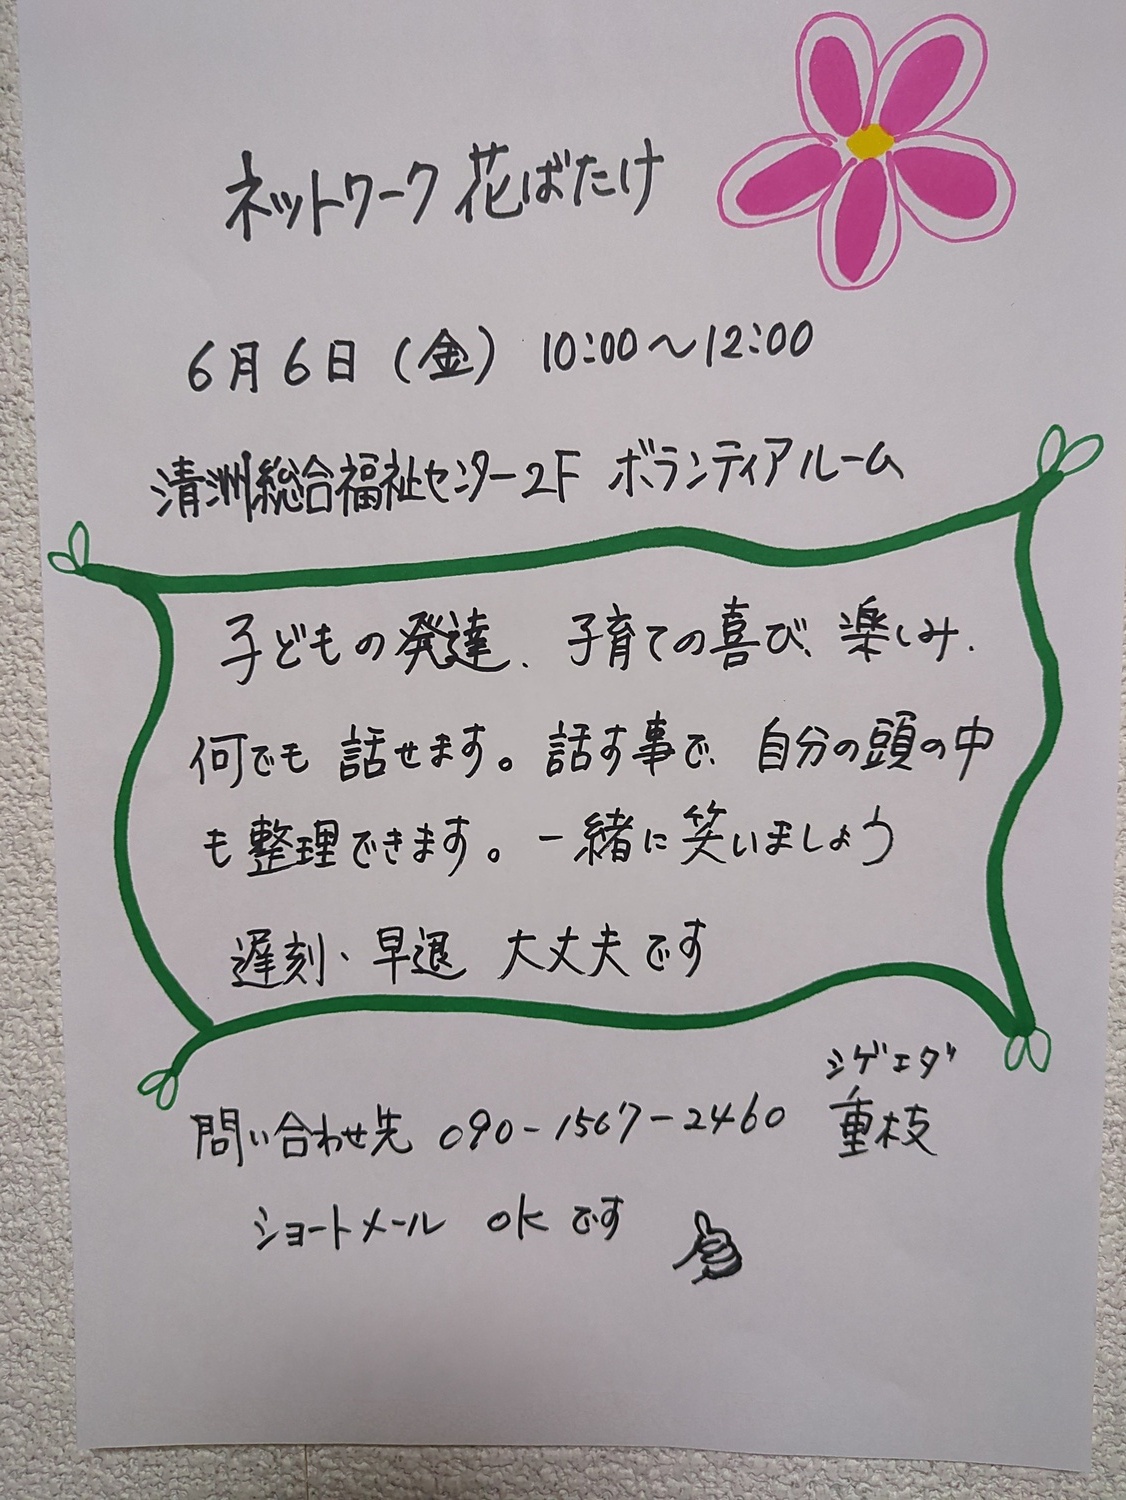 ネットワーク 花ばたけ
6月6日(金) 10:00〜12:00
清洲総合福祉センター2F ボランティアルーム
子どもの発達、子育ての喜び、楽しみ、
何でも 話せます。話す事で、自分の頭の中
も整理できます。一緒に笑いましょう
遅刻、早退 大丈夫です
シゲエダ
問い合わせ先 090-1567-2460 重枝
ショートメール OKです